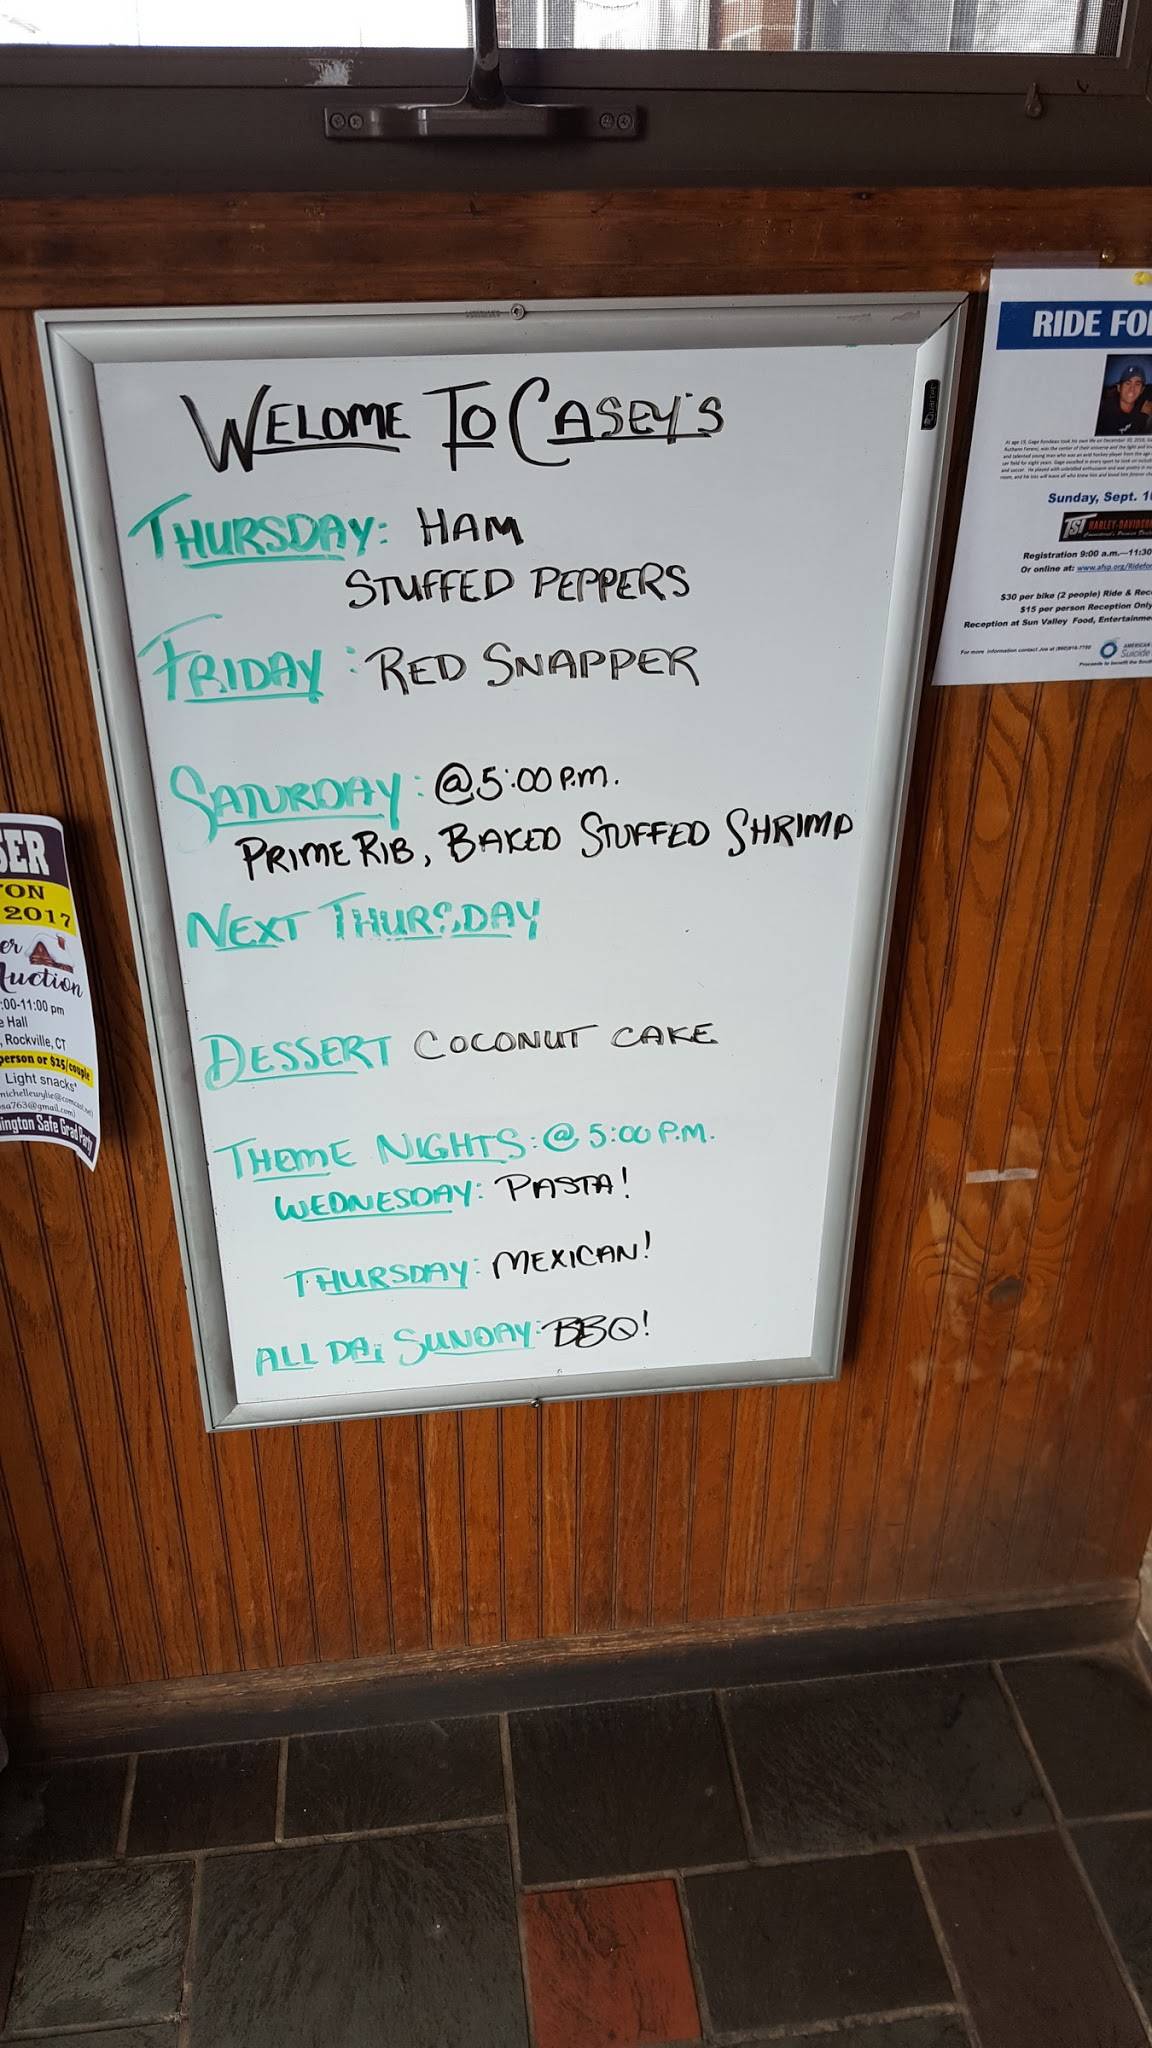 WELOME TO CASEY'S
THURSDAY: HAM
STUFFED PEPPERS
FRIDAY: RED SNAPPER
SATURDAY: @ 5:00 P.M.
PRIME RIB, BAKED STUFFED SHRIMP
NEXT THURSDAY
DESSERT COCONUT CAKE
THEME NIGHTS: @ 5:00 P.M.
WEDNESDAY: PASTA!
THURSDAY: MEXICAN!
ALL DAi SUNDAY: BBQ!
Quartet
RIDE FO
Sunday, Sept. 1
HARLEY-DAVIDSON
Registration 9:00 a.m.—11:30
Or online at: www.afsp.org/Ridefo
$30 per bike (2 people) Ride & Rec
$15 per person Reception Only
Reception at Sun Valley Food, Entertainme
AMERICAN
Suicide
SER
ON
2017
er
Auction
:00-11:00 pm
e Hall
, Rockville, CT
person or $25/couple
Light snacks*
michellewylie@comcast.net)
sa763@gmail.com)
ington Safe Grad Party